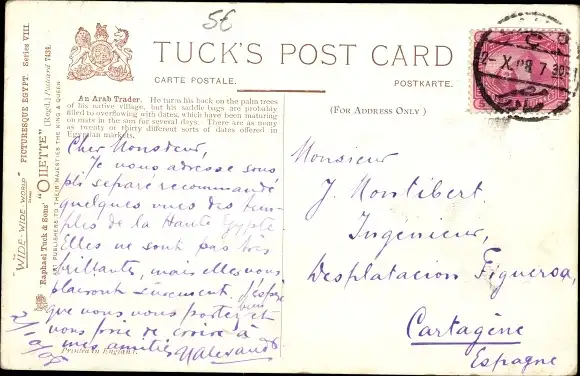 5€
TUCK'S POST CARD
CARTE POSTALE. POSTKARTE.
(FOR ADDRESS ONLY)
"WIDE-WIDE-WORLD" PICTURESQUE EGYPT. Series VIII.
Raphael Tuck & Sons' "OILETTE" (Regd.) Postcard 7434.
ART PUBLISHERS TO THEIR MAJESTIES THE KING & QUEEN
An Arab Trader. He turns his back on the palm trees
of his native village, but his saddle bags are probably
filled to overflowing with dates, which have been maturing
on mats in the sun for several days. There are as many
as twenty or thirty different sorts of dates offered in
Egyptian markets.
Cher Monsieur,
Je vous adresse sous
pli séparé recommandé
quelques vues des tem-
ples de la Haute Egypte
Elles ne sont pas très
brillantes, mais elles vous
plairont sûrement. J'espère
que vous vous portez bien et
vous prie de croire à
mes amitiés
Printed in England.
Monsieur
J. Montibert
Ingenieur,
Desplatacion Figueroa,
Cartagène
Espagne
2-X 08 7 30